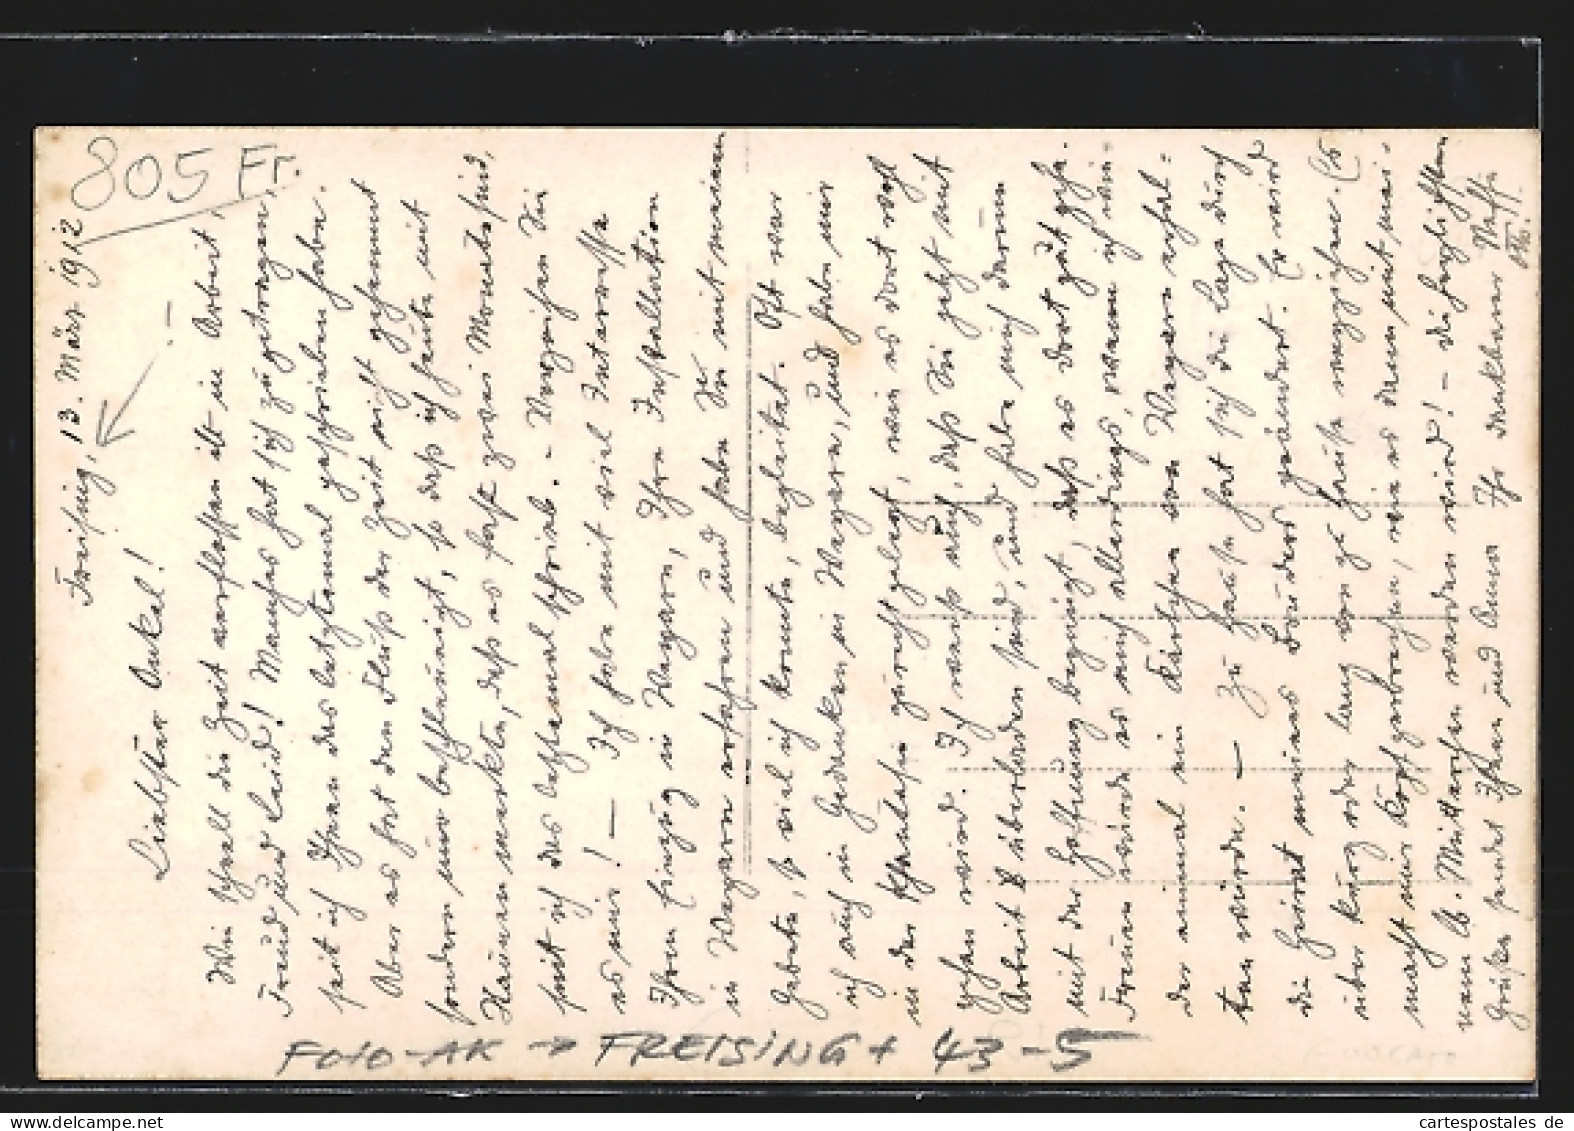 805 Fr.
Freising, 13. März 1912
Liebster Onkel!
Wie schnell die Zeit verflossen ist in Arbeit,
Freud und Leid! Manches hat sich zugetragen,
seit ich Ihnen das letztemal geschrieben habe.
Aber es hat den Fluß der Zeit nicht gehemmt
sondern nur beschleunigt, so daß ich heute mit
Staunen merkte, daß es fast zwei Monate sind,
seit ich das letztemal schrieb. - Verzeihen Sie
es mir! - Ich habe mit viel Interesse
Ihren Einzug in Wegarn, Ihre Installation
in Wegarn erfahren und habe Sie mit meinem
Gebete, so viel ich konnte, begleitet. Oft war
ich auch in Gedanken in Wegarn, und habe mir
in der Phantasie zurechtgelegt, wie es dort recht
gehen wird. Ich weiß auch, daß Sie jetzt mit
Arbeit überladen sind, und habe mich darum
mit der Hoffnung begnügt, daß es dort gut gehe.
Freuen würde es mich allerdings, wenn ich wie-
der einmal ein Kärtchen von Wegarn erhal-
ten würde. - Zu Hause hat sich die Lage durch
die Heirat meines Bruders geändert. Er wird
über kurz oder lang von zu Hause wegziehen. Es
macht mir Kopfzerbrechen, wie es dann mit mei-
nem lb. Mütterchen werden wird! - Die herzlichsten
Grüße sendet Ihnen und Anna Ihr dankbarer Neffe
FOTO-AK → FREISING + 43-5
cartespostales de